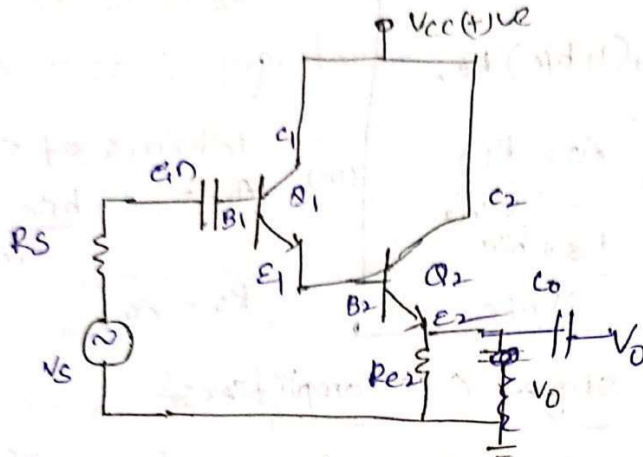 Vcc(+)ve
C1
Cin
B1
Q1
C2
RS
E1
B2
Q2
E2
Co
Vo
Re2
Vo
Vs